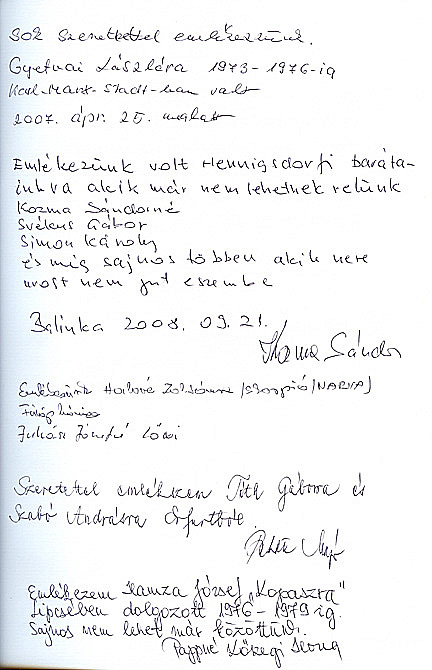 Sok szeretettel emlékezünk.
Gyetvai Lászlóra 1973-1976-ig
Karl-Marx-Stadt-ban volt
2007. ápr. 25.
Emlékezünk volt Hennigsdorfi baráta-
inkra akik már nem lehetnek velünk
Kozma Sándorné
Gábor
Simon Károly
és még sajnos többen akik neve
most nem jut eszembe
Balinka 2008. 09. 21.
Sándor
Emlékezünk
József
Szeretettel emlékezem Tóth Gáborra és
Szabó Andrásra Erfurtból.
Emlékezem Hamza József "Kopaszra"
Lipcsében dolgozott 1976-1979 ig.
Sajnos nem lehet már közöttünk.
Pappné Kőszegi Ilona